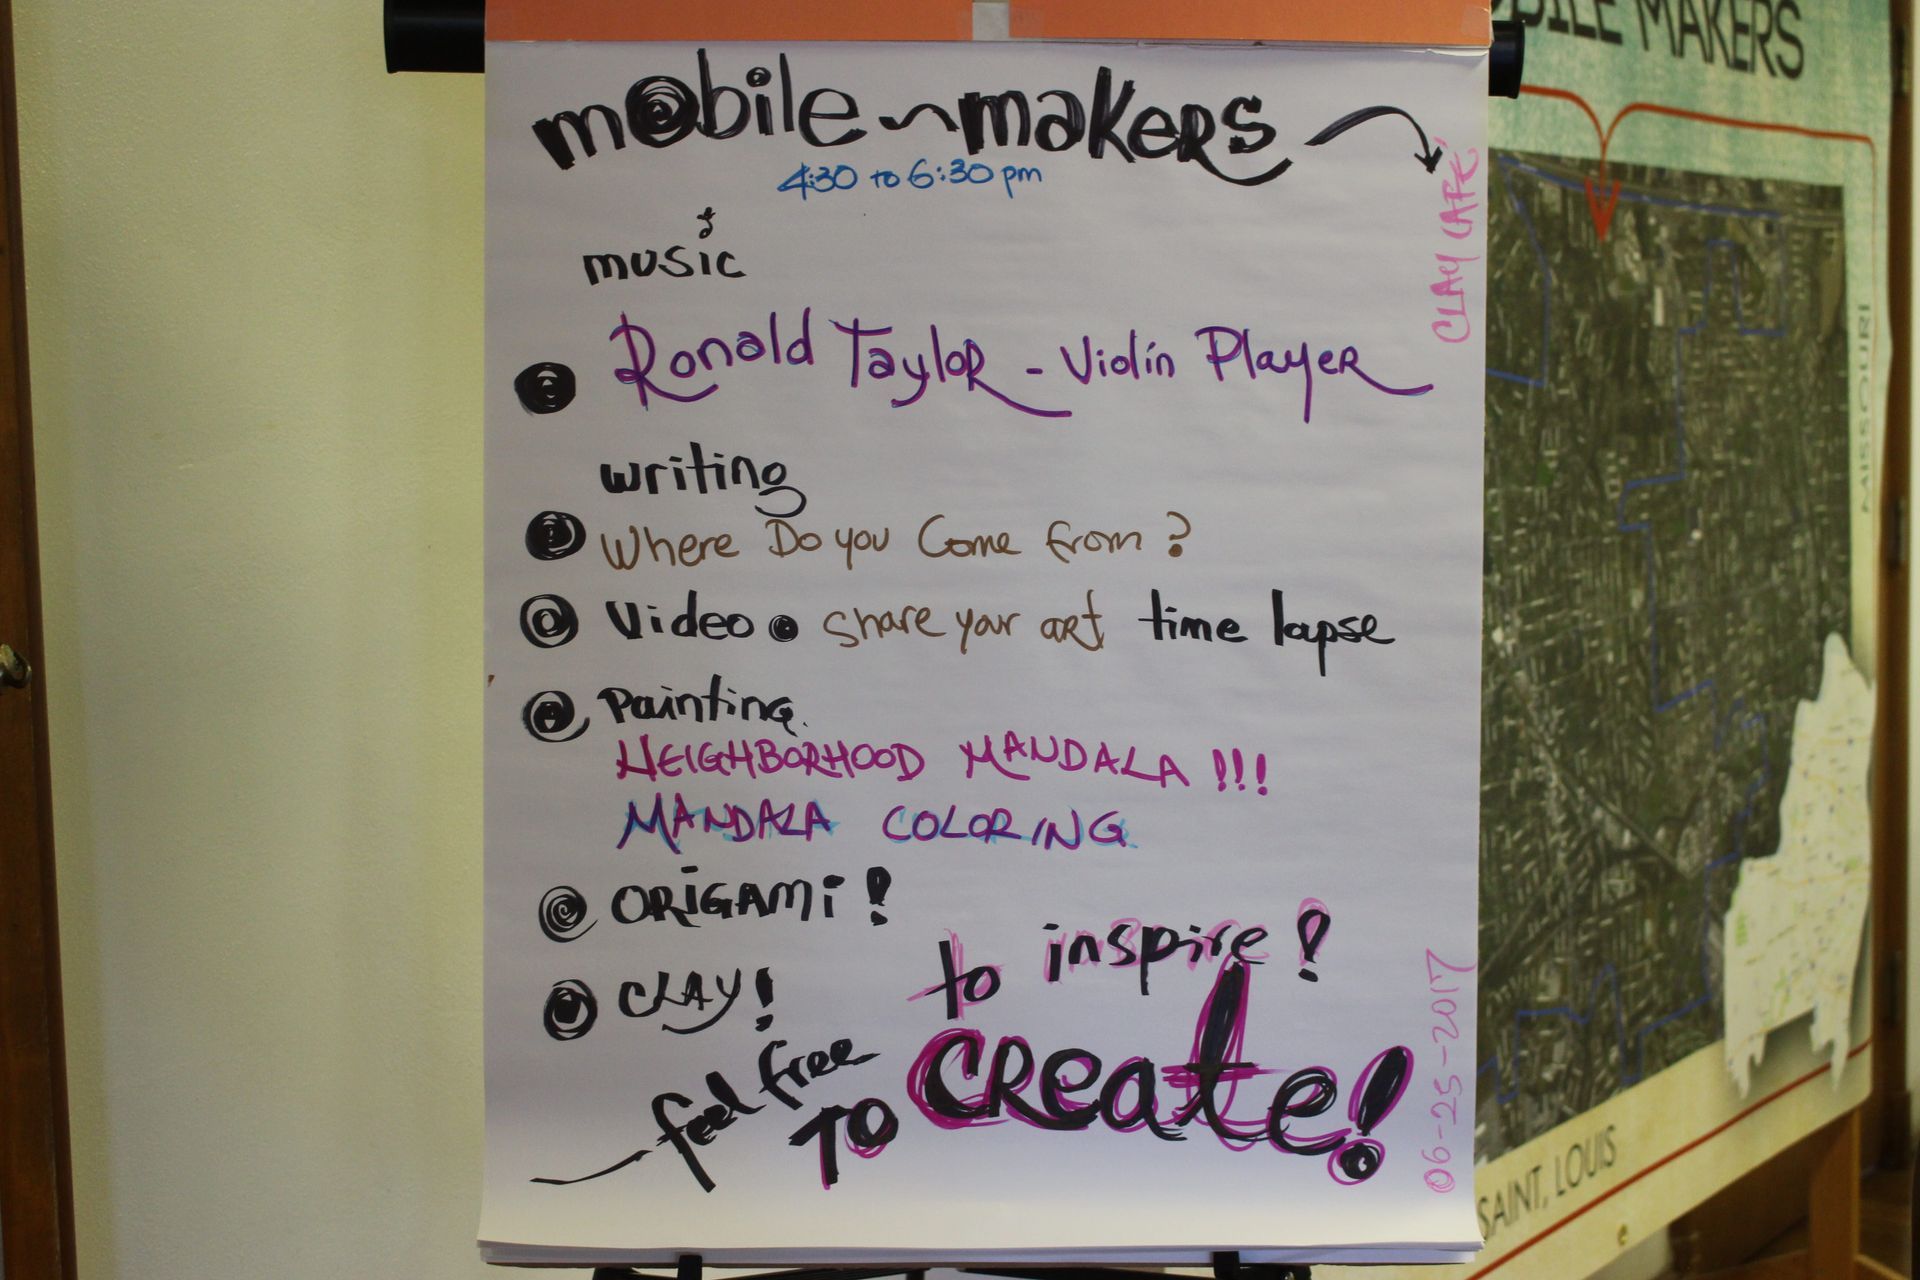 mobile ~ makers
4:30 to 6:30 pm
CLAY CAFÉ
music
Ronald Taylor - Violin Player
writing
Where Do you Come from?
Video • share your art time lapse
Painting.
NEIGHBORHOOD MANDALA !!!
MANDALA COLORING
ORIGAMI!
CLAY!
feel free
TO CREATE!
to inspire!
06-25-2017
MAKERS
MISSOURI
SAINT, LOUIS